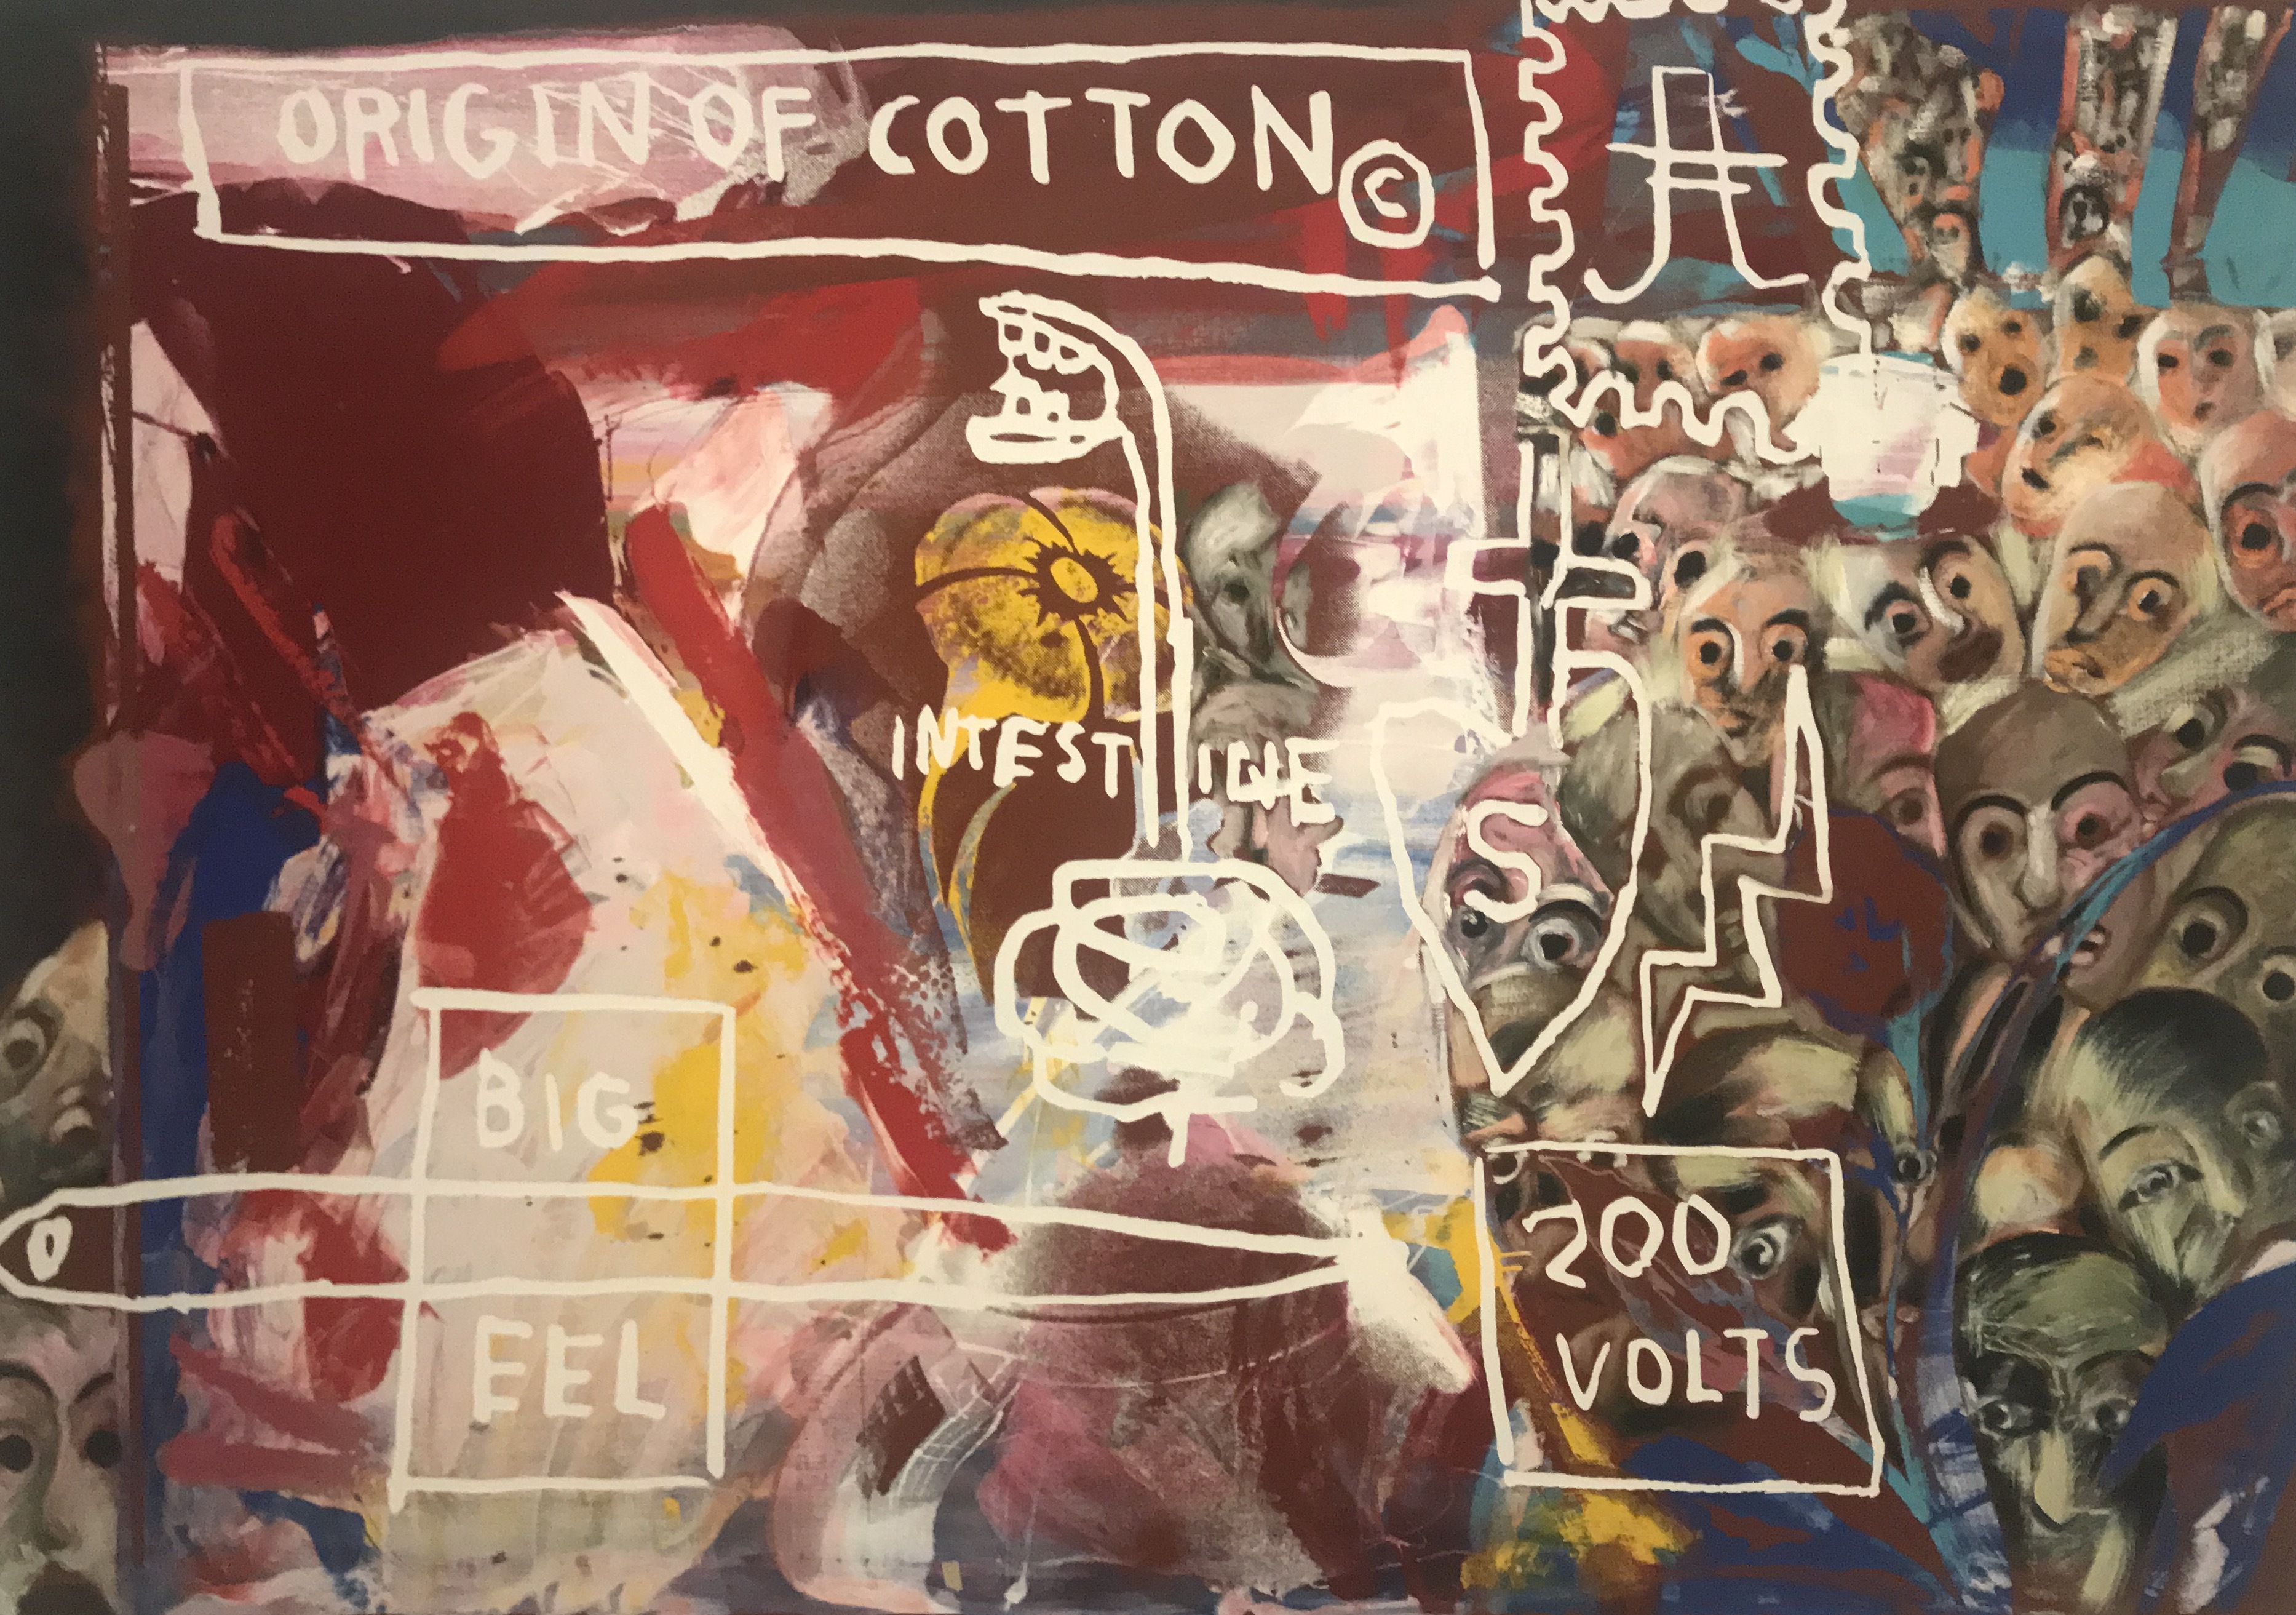 ORIGIN OF COTTON ©
INTESTINE
S
BIG
EEL
200
VOLTS